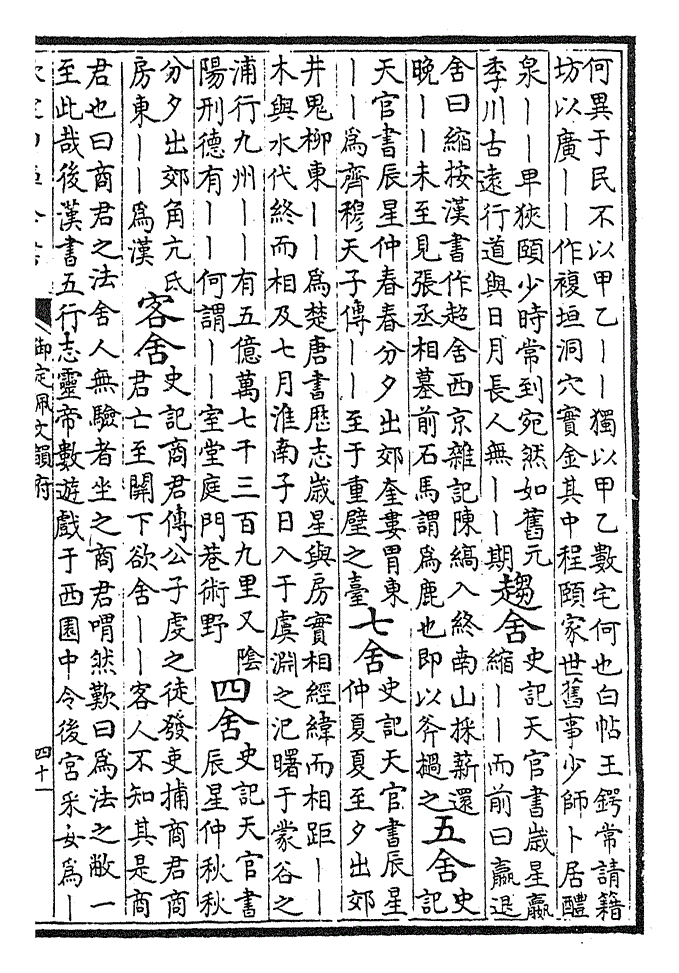 何異于民不以甲乙——獨以甲乙數宅何也白帖王鍔常請籍
坊以廣——作複垣洞穴實金其中程頤家世舊事少師卜居醴
泉——卑狹頤少時常到宛然如舊元
季川古遠行道與日月長人無——期
趨舍
史記天官書歲星贏
縮——而前曰贏退
舍曰縮按漢書作超舍西京雜記陳縞入終南山採薪還
晚——未至見張丞相墓前石馬謂爲鹿也即以斧檛之
五舍
史
記
天官書辰星仲春春分夕出郊奎婁胃東
——爲齊穆天子傳——至于重璧之臺
七舍
史記天官書辰星
仲夏夏至夕出郊
井鬼柳東——爲楚唐書歴志歲星與房實相經緯而相距——
木與水代終而相及七月淮南子日入于虞淵之汜曙于蒙谷之
浦行九州——有五億萬七千三百九里又陰
陽刑德有——何謂——室堂庭門巷術野
四舍
史記天官書
辰星仲秋秋
分夕出郊角亢氐
房東——爲漢
客舍
史記商君傳公子虔之徒發吏捕商君商
君亡至關下欲舍——客人不知其是商
君也曰商君之法舍人無驗者坐之商君喟然歎曰爲法之敝一
至此哉後漢書五行志靈帝數遊戲于西園中令後宮采女爲—
御定佩文韻府
四十一